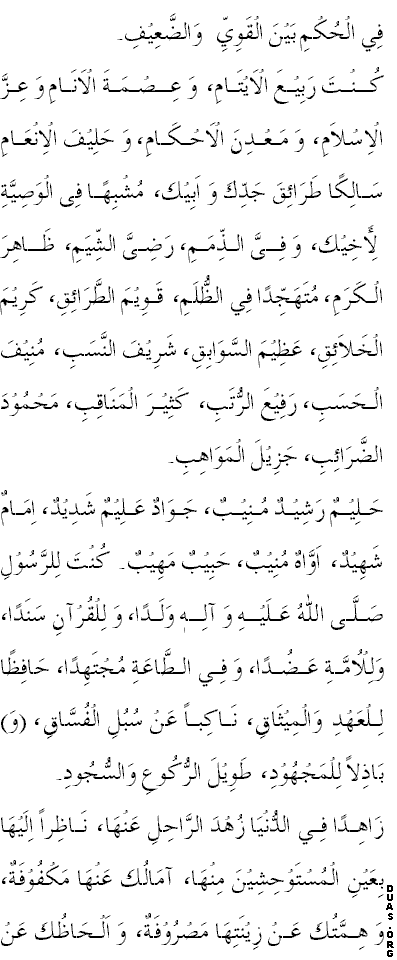 فِي الْحُكْمِ بَيْنَ الْقَوِيِّ وَالضَّعِيْفِ۔
كُنْتَ رَبِيْعَ الْاَيْتَامِ، وَ عِصْمَةَ الْاَنَامِ وَ عِزَّ
الْاِسْلاَمِ، وَ مَعْدِنَ الْاَحْكَامِ، وَ حَلِيْفَ الْاِنْعَامِ
سَالِكًا طَرَائِقَ جَدِّكَ وَ اَبِيْكَ، مُشْبِهًا فِى الْوَصِيَّةِ
لِأَخِيْكَ، وَ فِىَّ الذِّمَمِ، رَضِىَّ الشِّيَمِ، ظَاهِرَ
الْكَرَمِ، مُتَهَجِّدًا فِي الظُّلَمِ، قَوِيْمَ الطَّرَائِقِ، كَرِيْمَ
الْخَلاَئِقِ، عَظِيْمَ السَّوَابِقِ، شَرِيْفَ النَّسَبِ، مُنِيْفَ
الْحَسَبِ، رَفِيْعَ الرُّتَبِ، كَثِيْرَ الْمَنَاقِبِ، مَحْمُوْدَ
الضَّرَائِبِ، جَزِيْلَ الْمَوَاهِبِ۔
حَلِيْمٌ رَشِيْدٌ مُنِيْبٌ، جَوَادٌ عَلِيْمٌ شَدِيْدٌ، اِمَامٌ
شَهِيْدٌ، اَوَّاهٌ مُنِيْبٌ، حَبِيْبٌ مَهِيْبٌ۔ كُنْتَ لِلرَّسُوْلِ
صَلَّى اللهُ عَلَيْهِ وَ آلِهٖ وَلَدًا، وَ لِلْقُرْآنِ سَنَدًا،
وَلِلْاُمَّةِ عَضُدًا، وَ فِي الطَّاعَةِ مُجْتَهِدًا، حَافِظًا
لِلْعَهْدِ وَالْمِيْثَاقِ، نَاكِباً عَنْ سُبُلِ الْفُسَّاقِ، (وَ)
بَاذِلاً لِلْمَجْهُوْدِ، طَوِيْلَ الرُّكُوْعِ وَالسُّجُوْدِ۔
زَاهِدًا فِي الدُّنْيَا زُهْدَ الرَّاحِلِ عَنْهَا، نَاظِراً اِلَيْهَا
بِعَيْنِ الْمُسْتَوْحِشِيْنَ مِنْهَا، آمَالُكَ عَنْهَا مَكْفُوْفَةٌ،
وَ هِمَّتُكَ عَنْ زِيْنَتِهَا مَصْرُوْفَةٌ، وَ اَلْحَاظُكَ عَنْ
DUAS.ORG